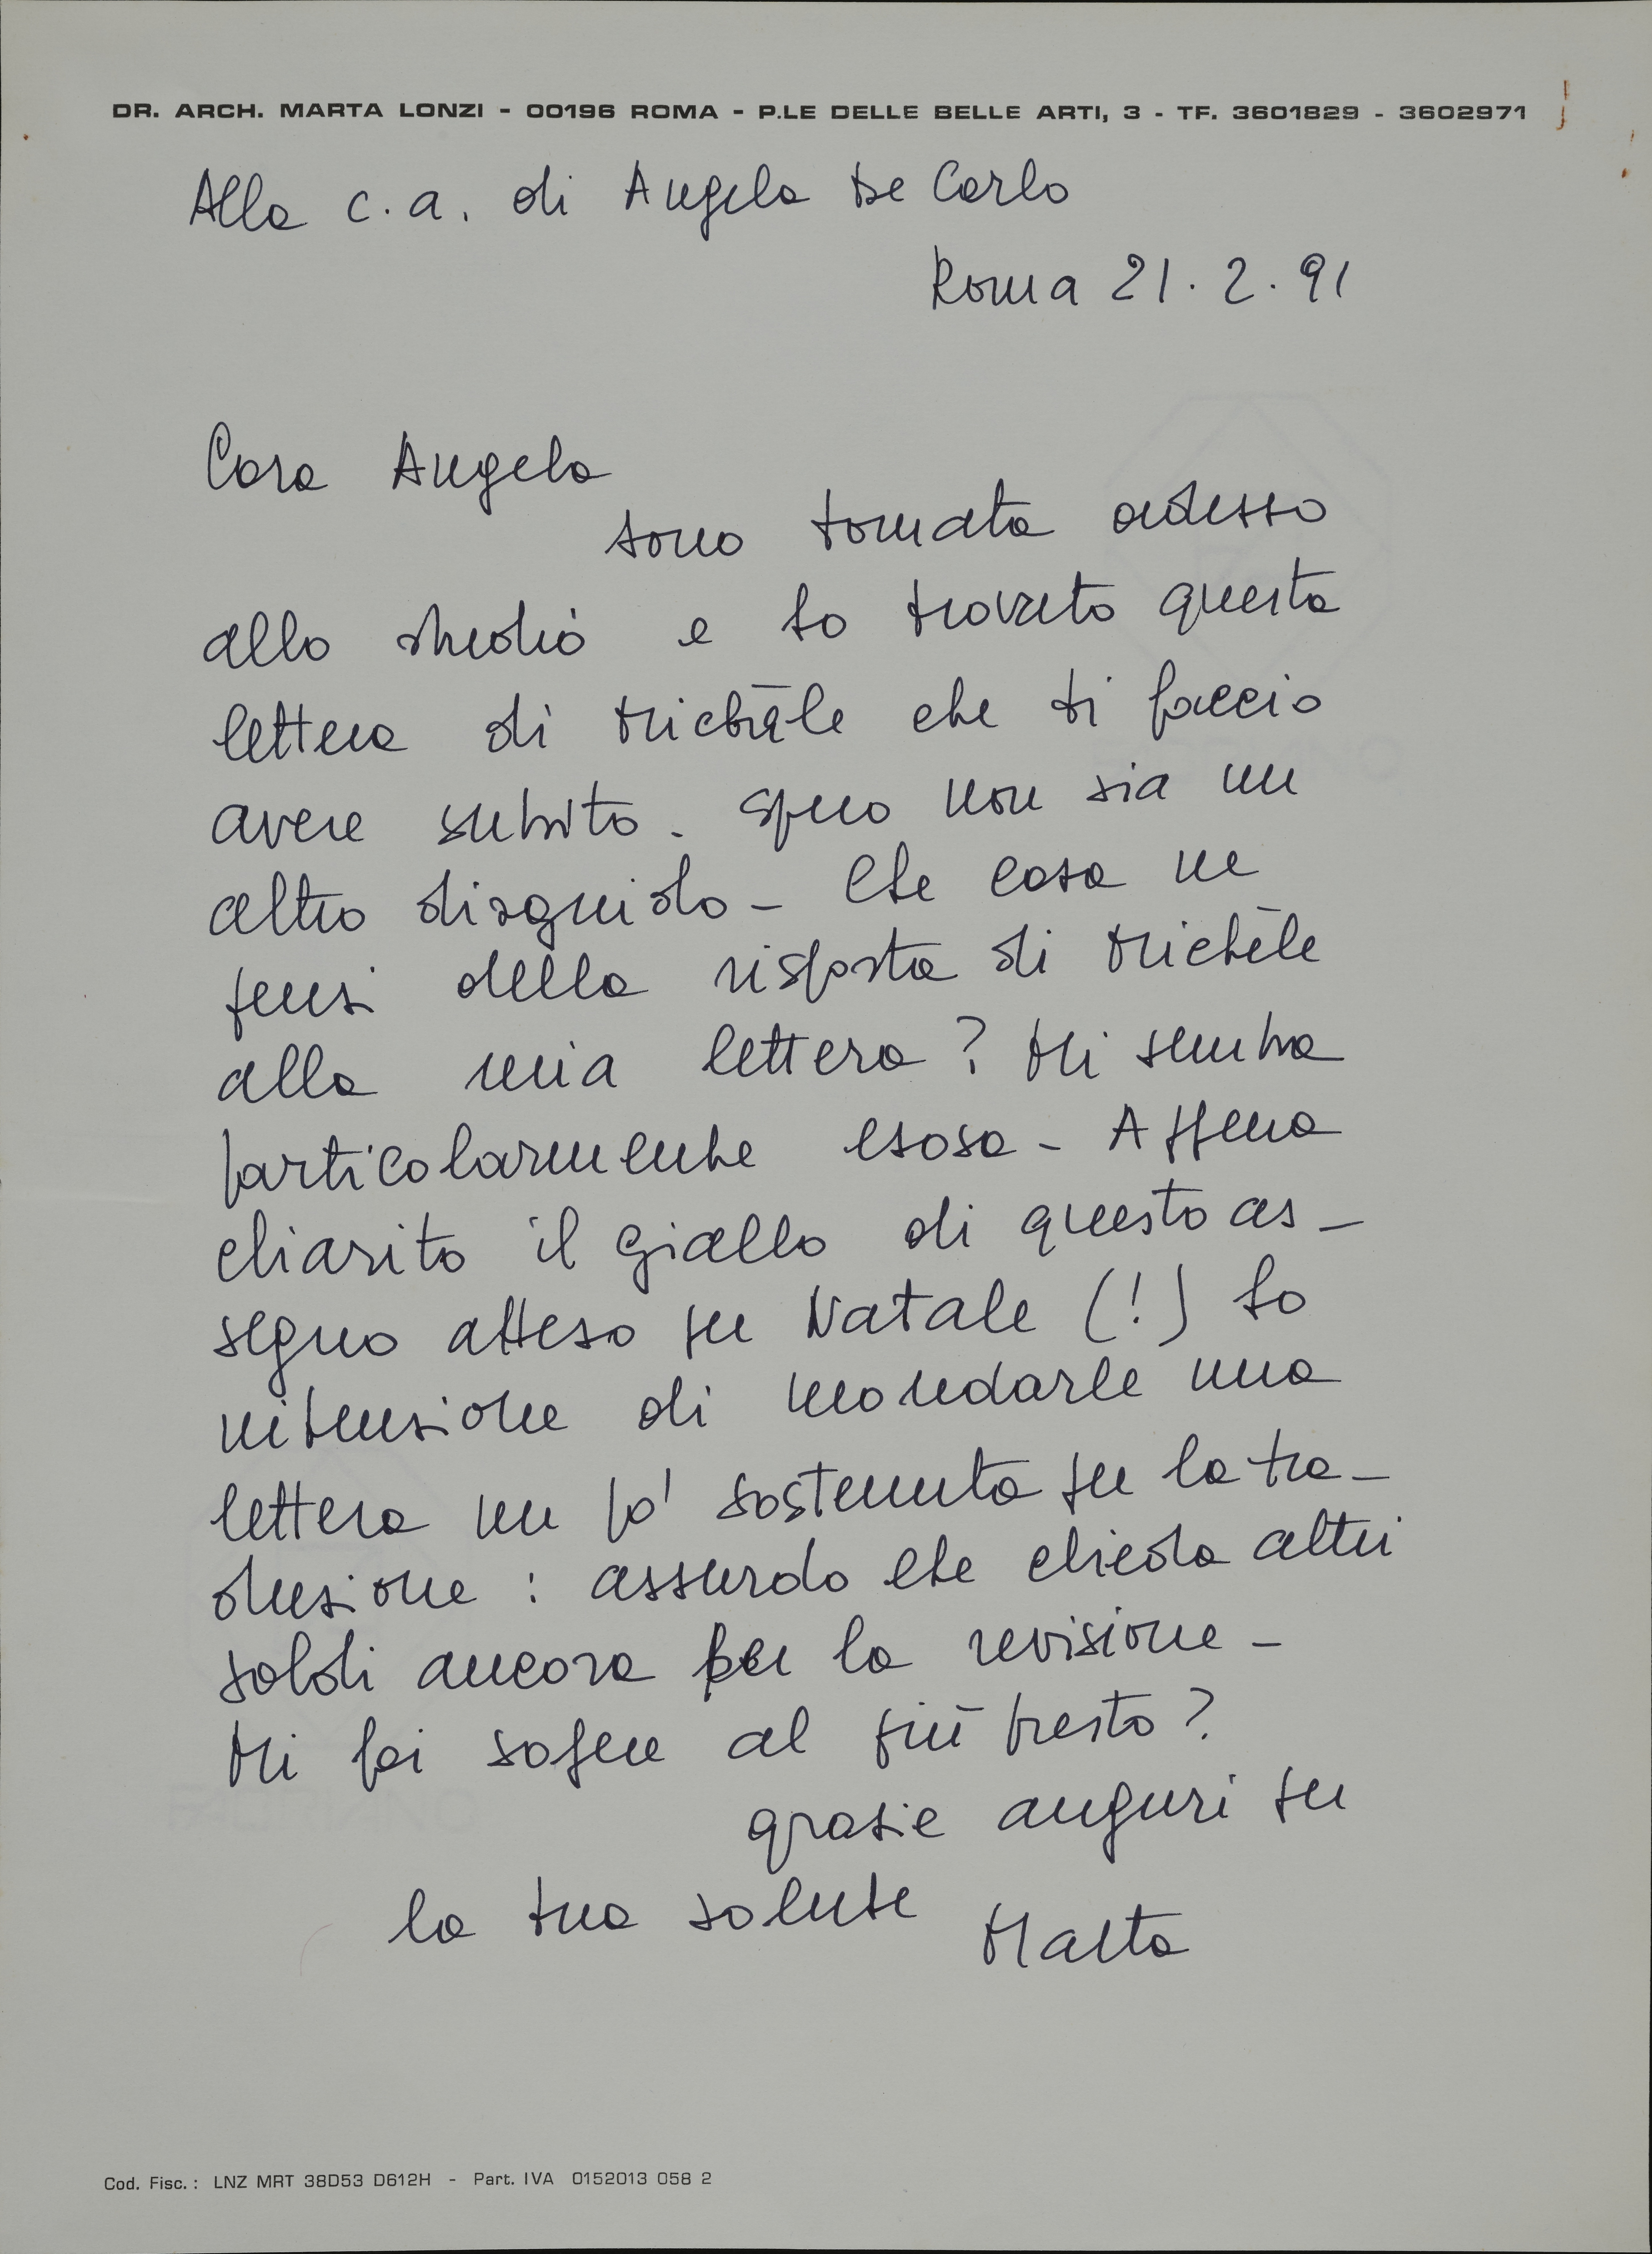 DR. ARCH. MARTA LONZI - 00196 ROMA - P.LE DELLE BELLE ARTI, 3 - TF. 3601829 - 3602971
Alla c.a. di Angela De Carlo
Roma 21.2.91
Cara Angela
sono tornata adesso
allo studio e ho trovato questa
lettera di Michēle che ti faccio
avere subito. Spero non sia un
altro disguido - Che cosa ne
pensi della risposta di Michēle
alla mia lettera? Mi sembra
particolarmente esosa - Appena
chiarito il giallo di questo as-
segno atteso per Natale (!) ho
intenzione di mandarle una
lettera un po' sostenuta per la tra-
duzione : assurdo che chieda altri
soldi ancora per la revisione -
Mi fai sapere al più presto?
grazie auguri per
la tua salute Marta
Cod. Fisc.: LNZ MRT 38D53 D612H - Part. IVA 0152013 058 2